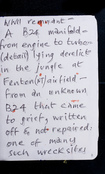 WWII remnant -
A B24 manifold -
from engine to turbo-
(detail) lying derelict
in the jungle at
Fenton(st) airfield -
from an unknown
B24 that came
to grief, written
off & not repaired:
one of many
such wreck sites